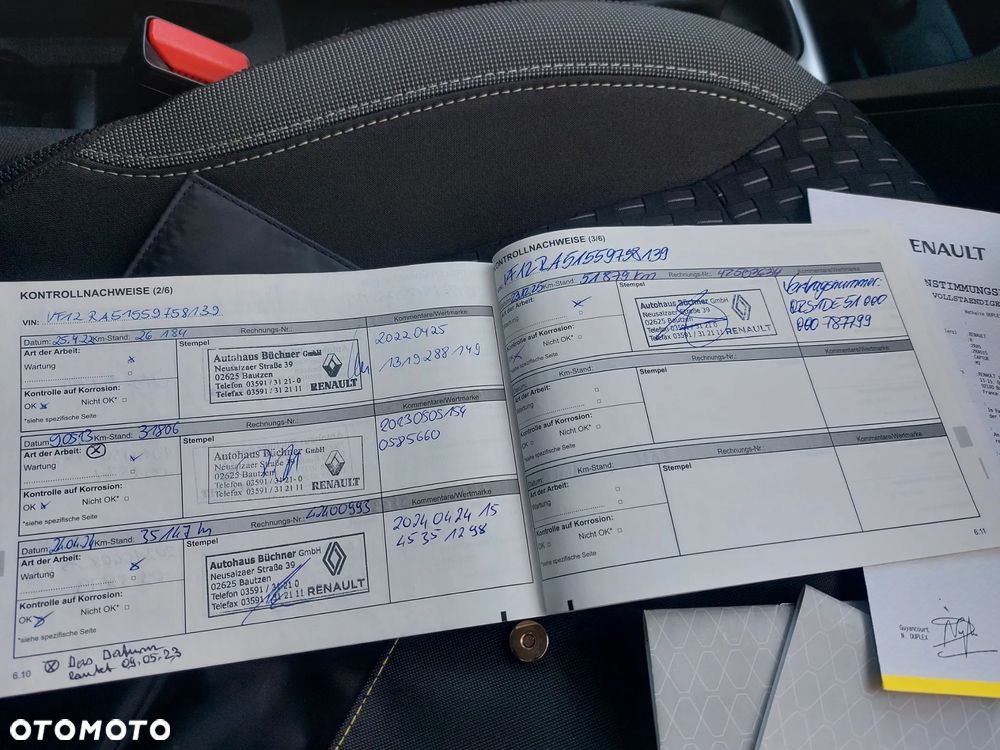 KONTROLLNACHWEISE (2/6)
VIN: VF12RA51559758139
Datum: 25.4.22 Km-Stand: 26 184 Rechnungs-Nr.: Kommentare/Wertmarke
Art der Arbeit:
Wartung
Kontrolle auf Korrosion:
OK Nicht OK*
*siehe spezifische Seite
Stempel
Autohaus Büchner GmbH
Neusalzaer Straße 39
02625 Bautzen
Telefon 03591 / 31 21-0
Telefax 03591 / 31 21 11
RENAULT
20220425
1319288149
Datum: Km-Stand: 31806 Kommentare/Wertmarke
Art der Arbeit:
Wartung
Kontrolle auf Korrosion:
OK Nicht OK*
*siehe spezifische Seite
Stempel
Autohaus Büchner GmbH
Neusalzaer Straße 39
02625 Bautzen
Telefon 03591 / 31 21-0
Telefax 03591 / 31 21 11
RENAULT
0585660
Datum: 24.04.24 Km-Stand: 35147 km Rechnungs-Nr.: 42400993 Kommentare/Wertmarke
Art der Arbeit:
Wartung
Kontrolle auf Korrosion:
OK Nicht OK*
*siehe spezifische Seite
Stempel
Autohaus Büchner GmbH
Neusalzaer Straße 39
02625 Bautzen
Telefon 03591 / 31 21 0
Telefax 03591 / 31 21 11
RENAULT
2024 04 24 15
45351298
6.10
Das Datum
lautet 09.05.23
KONTROLLNACHWEISE (3/6)
VF12RA51559758139
51879 km Rechnungs-Nr.: Kommentare/Wertmarke
Art der Arbeit:
Nicht OK*
*siehe spezifische Seite
Stempel
Autohaus Büchner GmbH
Neusalzaer Straße 39
02625 Bautzen
Telefon 03591 / 31 21 0
Telefax 03591 / 31 21 11
RENAULT
Vertragsnummer:
000 787799
Datum: Km-Stand: Rechnungs-Nr.: Kommentare/Wertmarke
Art der Arbeit:
Wartung
Kontrolle auf Korrosion:
OK Nicht OK*
*siehe spezifische Seite
Stempel
Datum: Km-Stand: Rechnungs-Nr.: Kommentare/Wertmarke
Art der Arbeit:
Wartung
Kontrolle auf Korrosion:
OK Nicht OK*
*siehe spezifische Seite
Stempel
6.11
ENAULT
NSTIMMUNGS
VOLLSTAENDIGE
Guyancourt
N. DUPLEX
OTOMOTO